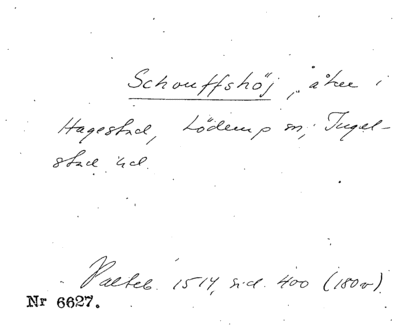 Schouffshöj, åker i
Hagestad, Löderup sn, Ingel-
stad hd.
Palteb. 1514, sid. 400 (180v).
Nr 6627.